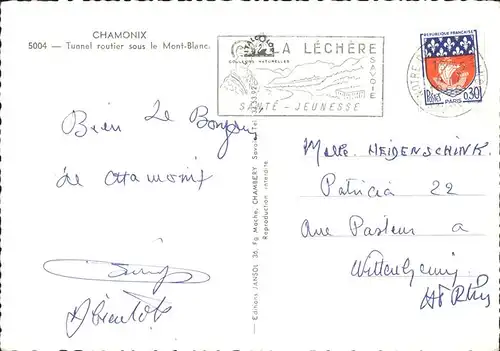 CHAMONIX
5004 — Tunnel routier sous le Mont-Blanc.
LA LÉCHÈRE
SAVOIE
SANTÉ - JEUNESSE
REPUBLIQUE FRANÇAISE
POSTES
0,30
PARIS
Bien Le Bonjour
de chamonix
A bientôt
Editions JANSOL 36, Fg Maché, CHAMBERY Savoie Tel.
Reproduction interdite
Melle HEIDENSCHINK
Patricia 22
Rue Pasteur a
Wittenheim
Ht Rhin